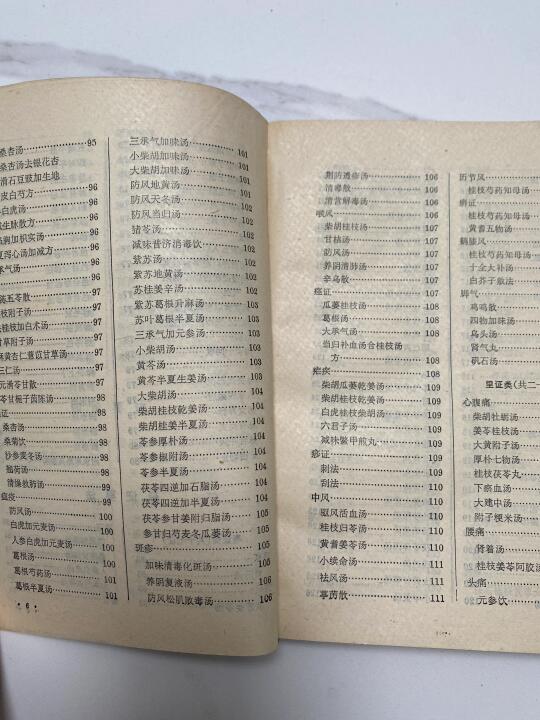 桑杏汤 95
桑杏汤去银花杏
滑石豆豉加生地
皮白芍方 96
白虎汤 96
生脉散方 96
加枳实汤 96
泻心汤加减方 96
气汤 96
97
五苓散 97
枝附子汤 97
桂枝加白术汤 97
草汤 97
麻黄杏仁薏苡甘草汤 97
三仁汤 97
元滑苓甘散 98
苓甘栀子茵陈汤 98
证
桑杏汤 98
桑菊饮 98
沙参麦冬汤 98
翘荷汤 98
清燥救肺汤 99
瘟疫 99
防风汤 100
白虎加元麦汤 100
人参白虎加元麦汤 100
葛根汤 100
葛根芍药汤 100
葛根半夏汤 101
· 6 ·
三承气加味汤 101
小柴胡加味汤 101
大柴胡加味汤 101
防风地黄汤 101
防风天冬汤 102
防风当归汤 102
猪苓汤 102
减味普济消毒饮 102
紫苏汤 102
紫苏地黄汤 102
苏桂姜辛汤 102
紫苏葛根升麻汤 103
苏叶葛根半夏汤 103
三承气加元参汤 103
小柴胡汤 103
黄芩汤 103
黄芩半夏生姜汤 103
大柴胡汤 104
柴胡桂枝乾姜汤 104
柴胡桂姜半夏汤 104
苓参厚朴汤 104
苓参椒附汤 104
苓参半夏汤 104
茯苓四逆加石脂汤 104
茯苓四逆加半夏汤 104
茯苓参甘姜附归脂汤 105
参甘归芍麦冬瓜蒌汤 105
斑疹 105
加味清毒化斑汤 105
养阴复液汤 106
防风松肌败毒汤 106
荆防透疹汤 106
清毒散 106
清营解毒汤 106
喉风 107
柴胡桂枝汤 107
甘桔汤 107
防风汤 107
养阴清肺汤 107
辛乌散 107
痉证 107
瓜蒌桂枝汤 107
葛根汤 108
大承气汤 108
当归补血汤合桂枝汤
方 108
疟疾 108
柴胡瓜蒌乾姜汤 108
柴胡桂枝乾姜汤 109
白虎桂枝柴胡汤 109
六君子汤 109
减味鳖甲煎丸 109
痧证 109
刺法 109
刮法 110
中风 110
驱风活血汤 110
桂枝归苓汤 110
黄耆姜苓汤 110
小续命汤 111
祛风汤 111
葶苈散 111
历节风
桂枝芍药知母汤
痹证
桂枝芍药知母汤
黄耆五物汤
鹤膝风
桂枝芍药知母汤
十全大补汤
白芥子散法
脚气
鸡鸣散
四物加味汤
乌头汤
肾气丸
矾石汤
里证类(共二一
心腹痛
柴胡牡蛎汤
姜苓桂枝汤
大黄附子汤
厚朴七物汤
桂枝茯苓丸
下瘀血汤
大建中汤
附子粳米汤
腰痛
肾着汤
桂枝姜苓阿胶汤
头痛
元参饮